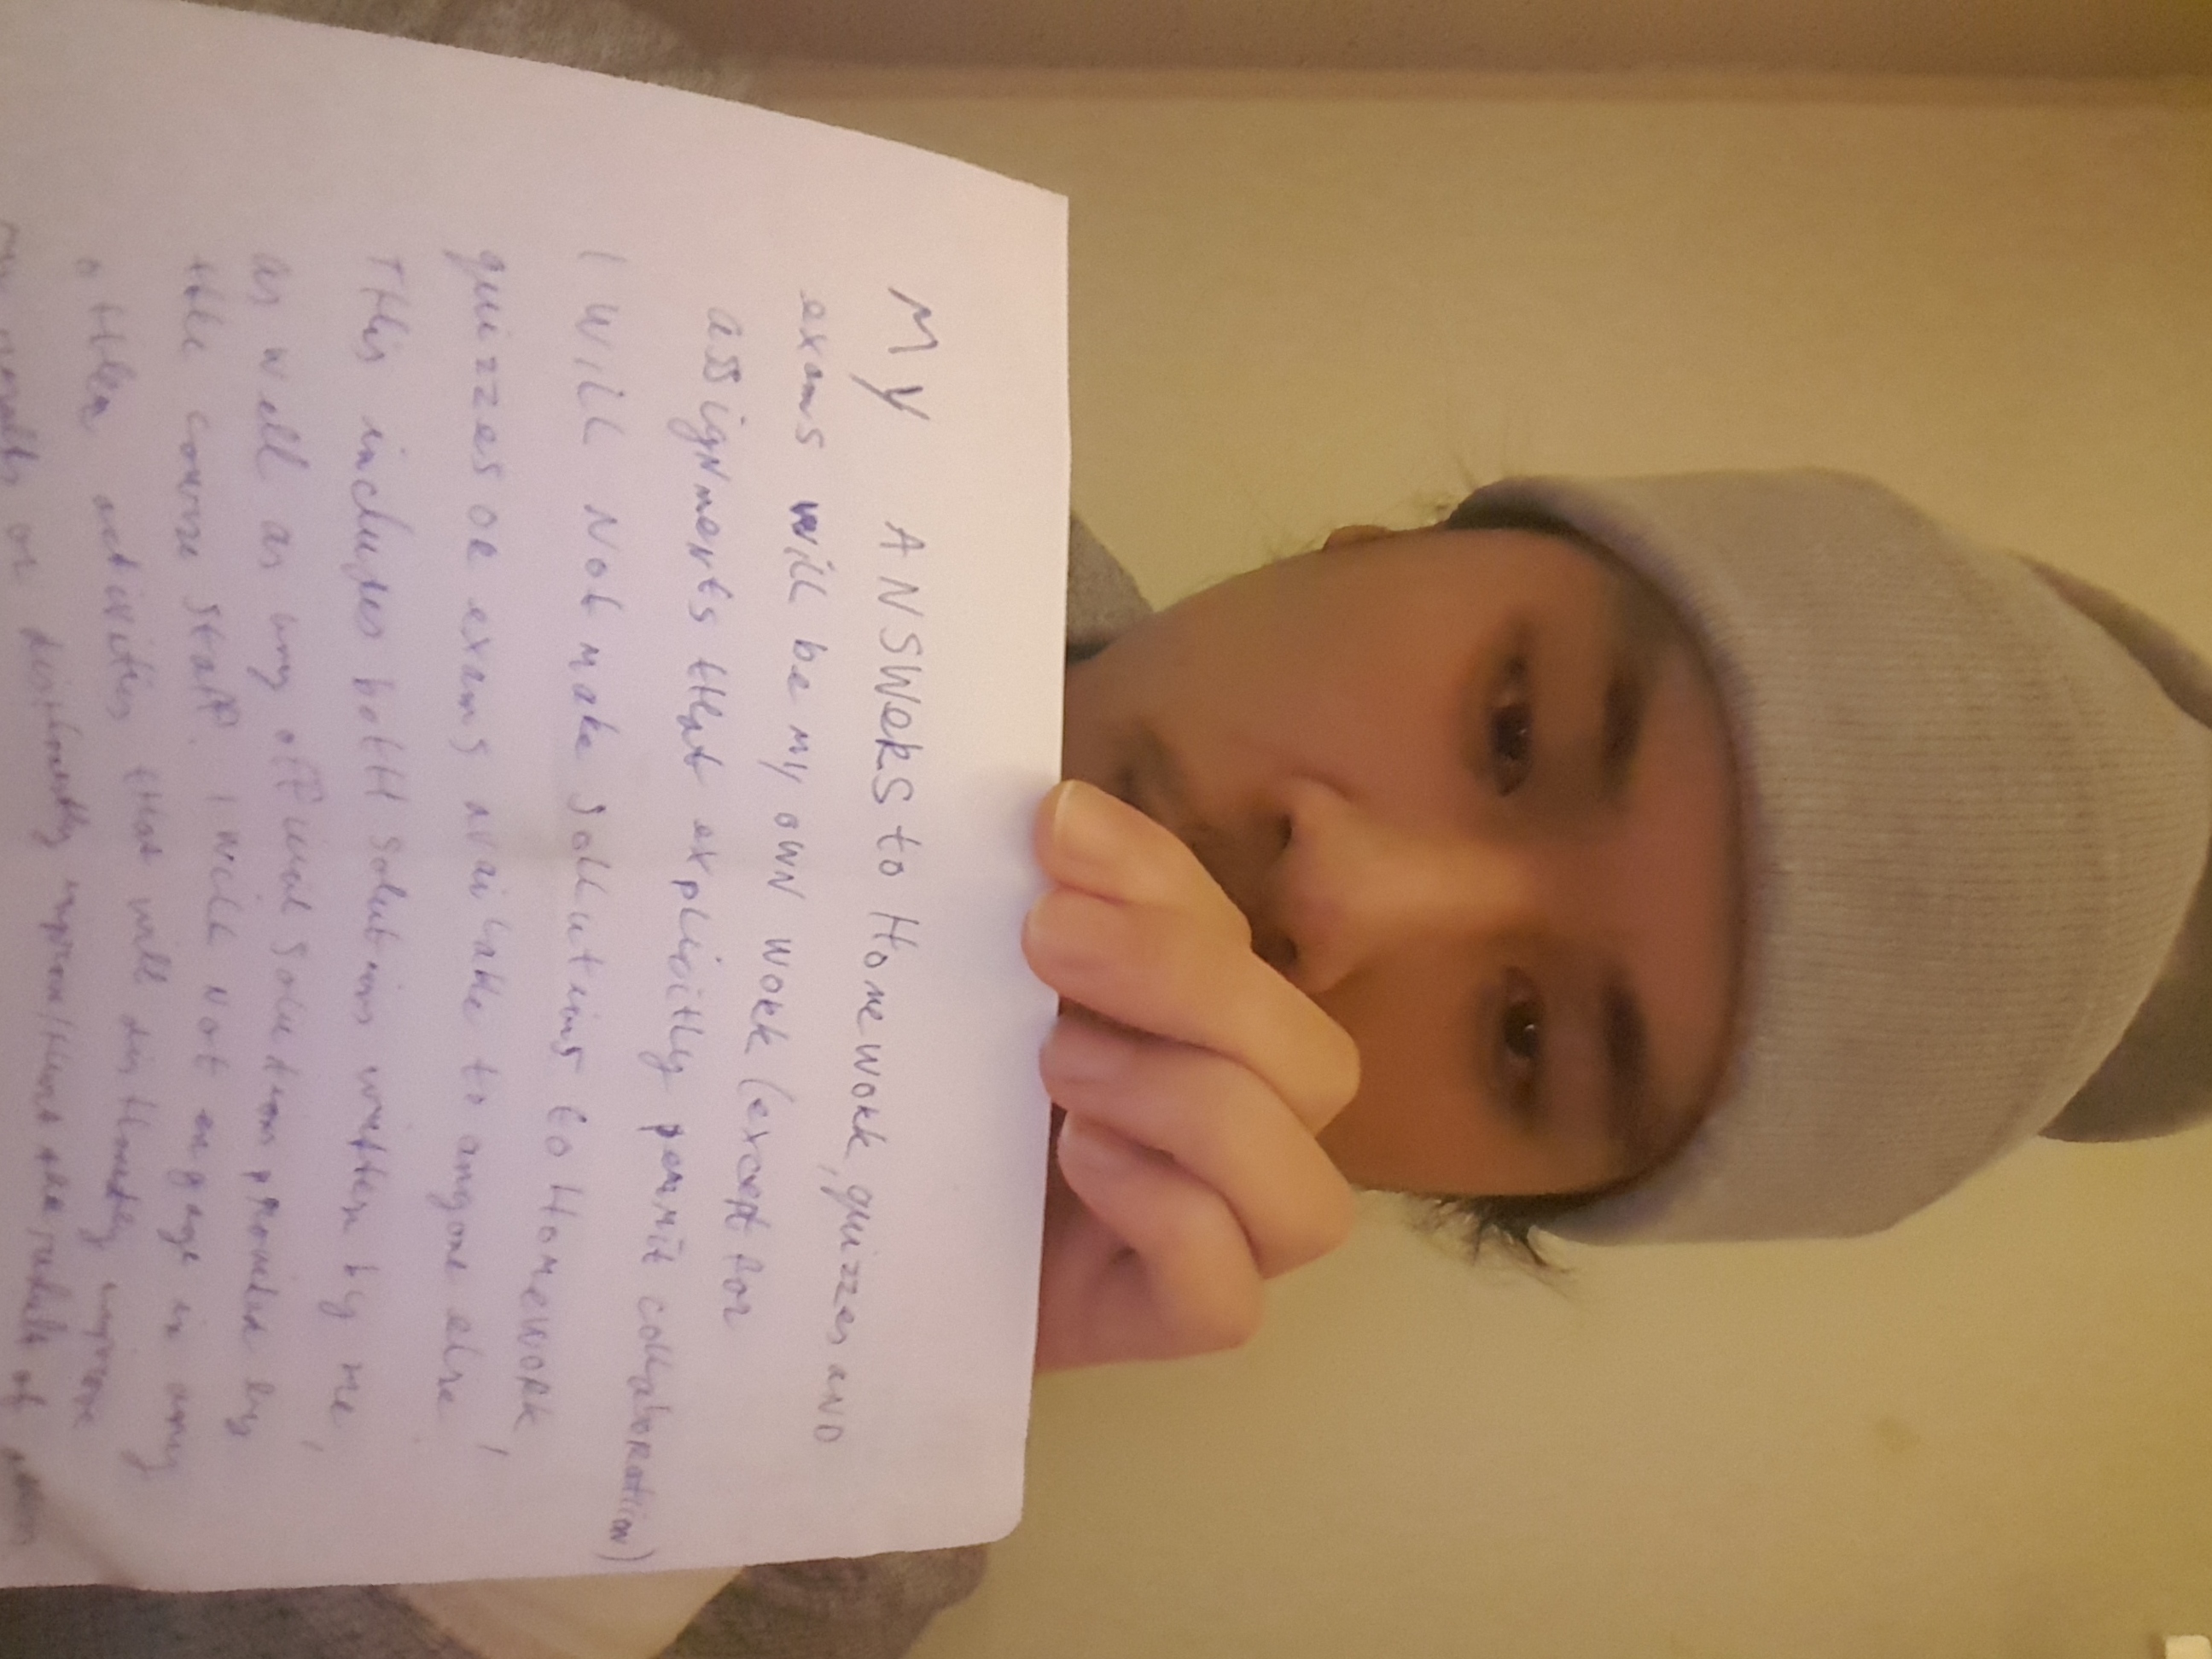 My ANSWERS to Homework, quizzes AND
exams will be my own work (except for
assignments that explicitly permit collaboration)
I will Not make sollutions to Homework,
quizzes or exams available to anyone else.
This includes both solutions written by me,
as well as any official solutions provided by
the course staff. I will Not engage in any
other activities that will dishonestly improve
my results or dishonestly improve/hurt the result of others